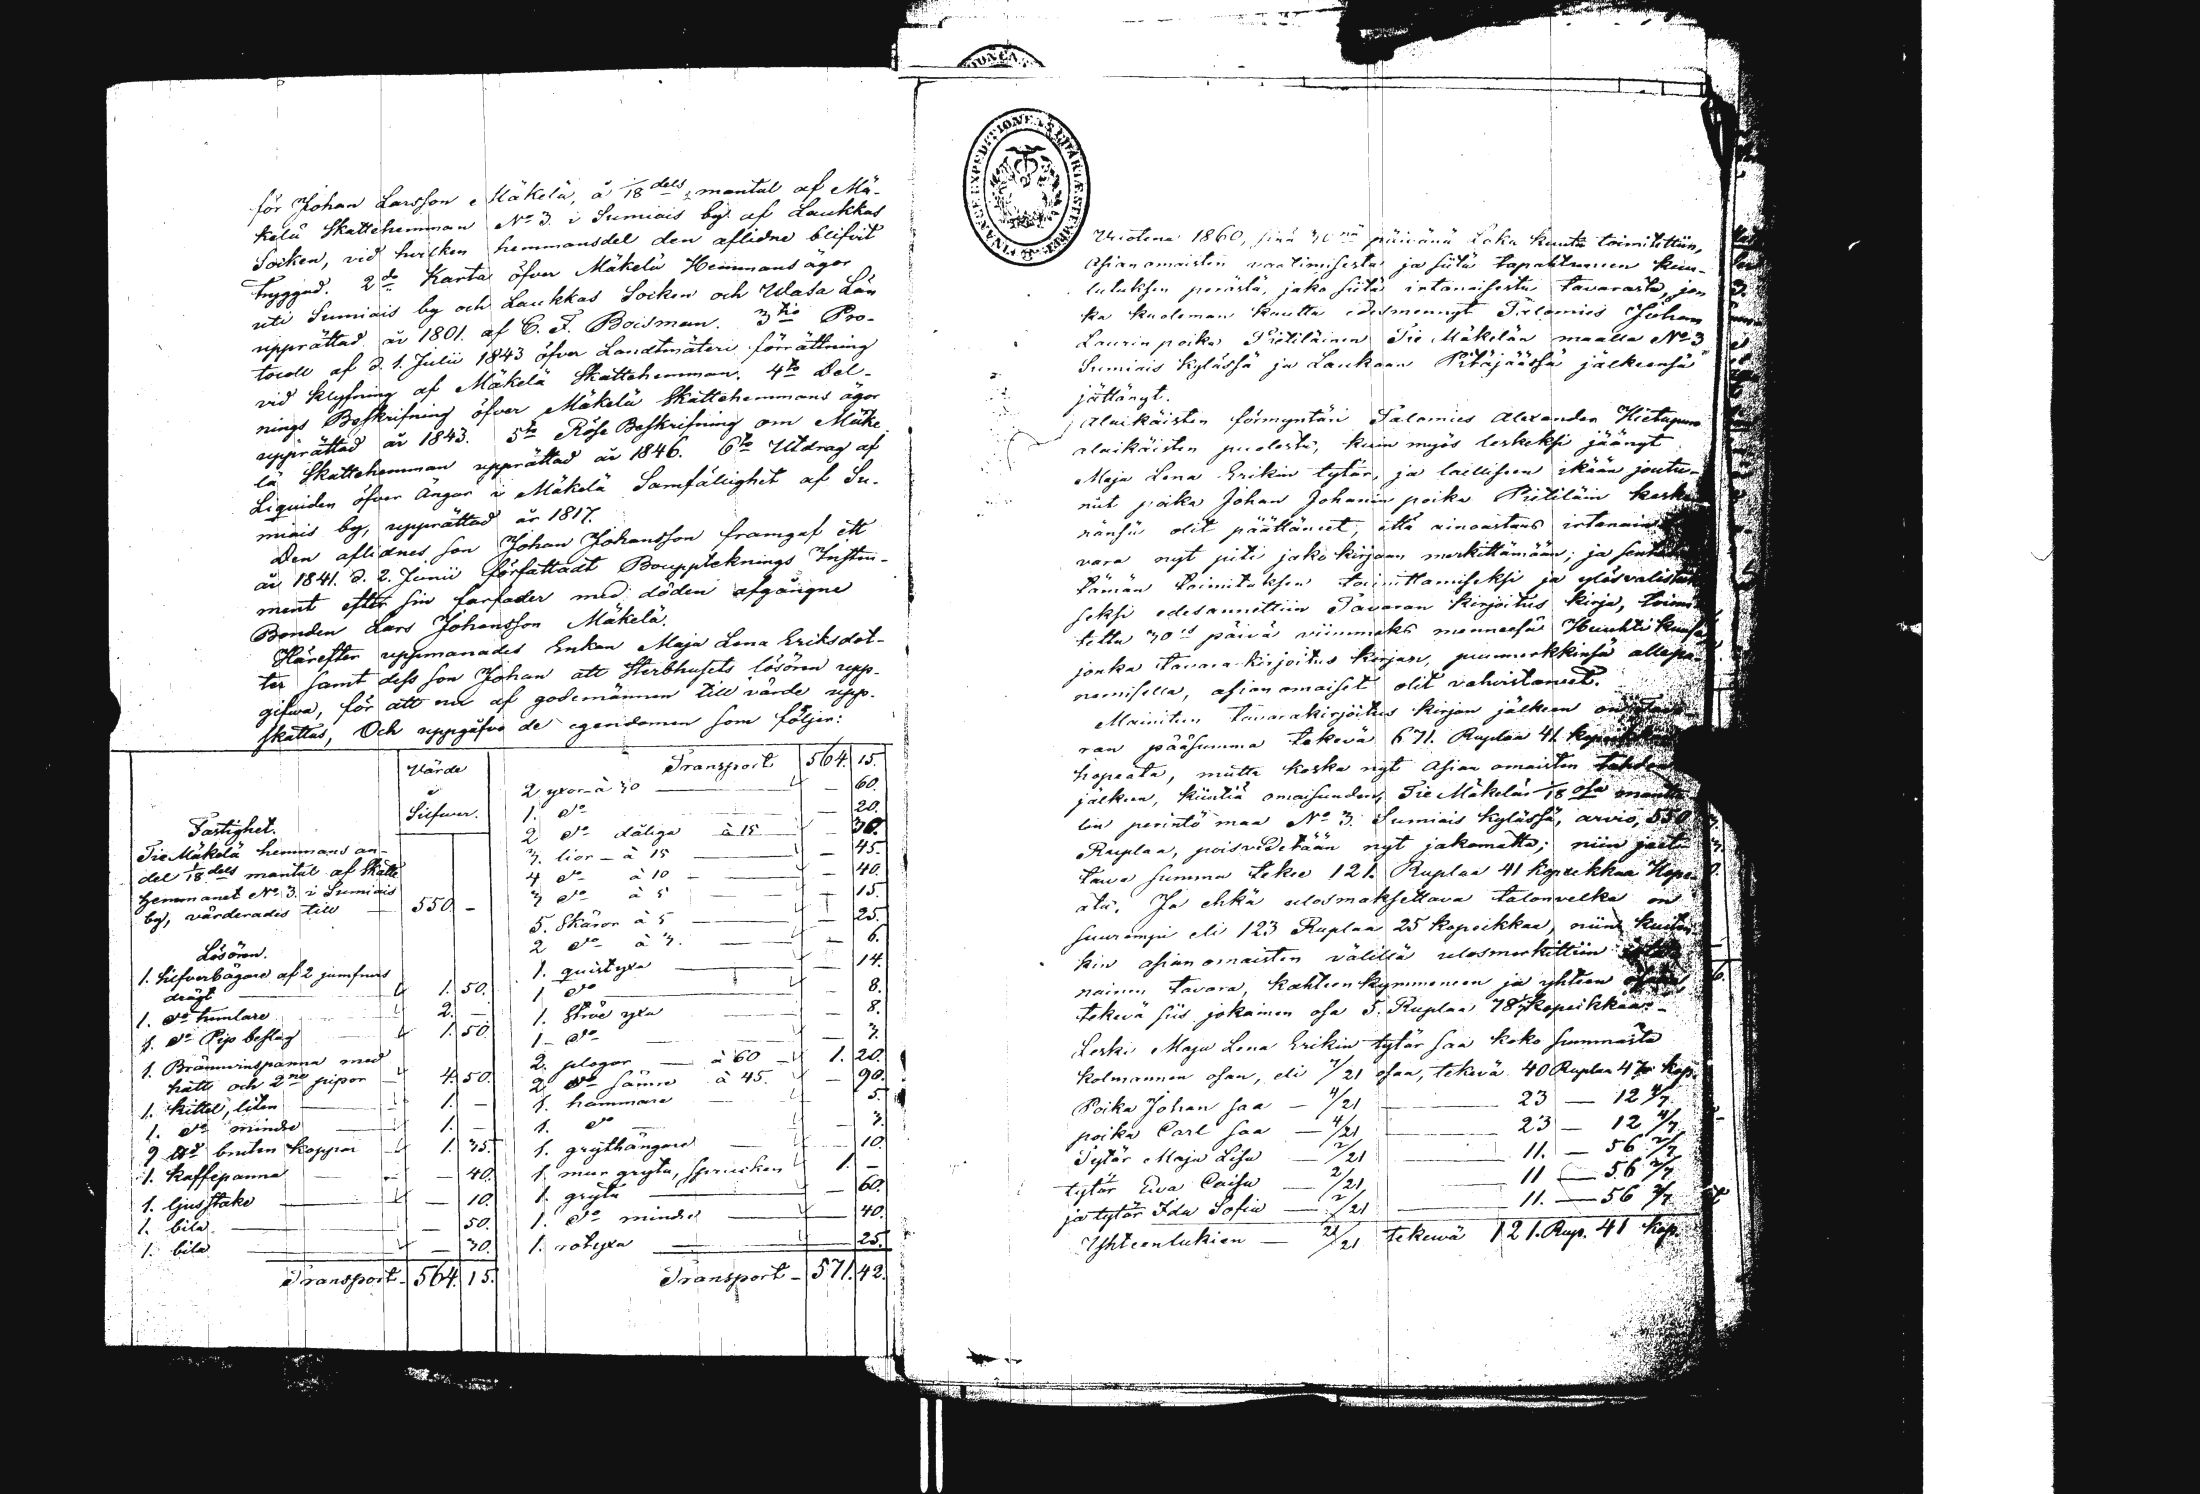 för Johan Larsson Mäkelä, å 1/18 dels mantal af Mä-
kelä Skattehemman No 3. i Sumiais by af Laukkas
Socken, vid hvilken hemmansdel den aflidne blifvit
tryggad. 2do Karta öfver Mäkelä Hemmans ägor
uti Sumiais by och Laukkas Socken och Wasa Län
upprättad år 1801. af C. F. Boisman. 3tio Pro-
tocoll af d. 1. Julii 1843 öfver Landtmäteri förrättning
vid klyfning af Mäkelä Skattehemman. 4to Del-
nings Beskrifning öfver Mäkelä Skattehemmans ägor
upprättad år 1843. 5to Röse Beskrifning om Mäke
lä Skattehemman upprättad år 1846. 6to Utdrag af
Liquiden öfver Ängar i Mäkelä Samfällighet af Su-
miais by, upprättad år 1817.
Den aflidnes son Johan Johansson framgaf ett
år 1841. d. 2. Junii författadt Bouppteknings Instru-
ment efter sin farfader med döden afgångne
Bonden Lars Johansson Mäkelä.
Härefter uppmanades Enkan Maja Lena Eriksdot-
ter samt dess son Johan att Sterbhusets lösören upp-
gifva, för att nu af godemännen till värde upp-
skattas, Och uppgåfvo de egendomen som följer:
Värde
i
Silfwer.
Fastighet.
Tie Mäkelä hemmans an-
del 1/18 dels mantal af Skatte
hemmanet No 3. i Sumiais
by, värderades till — 550. -
Lösören.
1. Silfverbägare af 2 jumfrurs
drägt — 1. 50.
1. do tumlare — 2. —
1. do Pip beslag — 1. 50
1. Brännvinspanna med
hatt och 2ne pipor — 4. 50.
1. kittel, liten — 1. —
1. do mindre — 1. —
9 bruten koppar — 1. 35.
1. kaffepanna — 40.
1. ljusstake — 10.
1. bila — 50.
1. bila — 30.
Transport - 564. 15.
Transport 564. 15.
2 yxor à 30 — 60.
1. do — 20.
2 do dåliga à 15 — 30.
3. lior - à 15 — 45.
4 do à 10 - — 40.
3 do à 5 — 15.
5. Skäror à 5 — 25.
2 do à 3. — 6.
1. quistyxa — 14.
1 do — 8.
1. yxa — 8.
1- do — 3.
2. plogar — à 60 — 1. 20.
2 do sämre à 45. — 90.
1. hammare — 5.
1. do — 3.
1. grythängare — 10.
1. mur gryta, sprucken 1. -
1. gryta — 60.
1. do mindre — 40.
1. rotyxa — 25.
Transport - 571. 42.
FINANCE EXPEDITIONENS
Vuotena 1860, sinä 30nä päivänä Loka kuuta toimitettiin,
Asian omaisten vaatimisesta ja siitä tapahtuneen kuu-
lutuksen perästä, jako siitä irtanaisesta tavarasta, jon
ka kuoleman kautta edesmennyt Talomies Johan
Laurin poika Pietiläinen Tie Mäkelän maalla No 3
Sumiais kylässä ja Laukaan Pitäjäässä jälkeensä
jättänyt.
Alaikäisten förmyntäri Talomies Alexander Hietapuro
alaikäisten puolesta, kuin myös leskeksi jäänyt
Maja Lena Erikin tytär, ja lailliseen ikään joutu-
nut poika Johan Johanin poika Pietiläin keske-
nänsä olit päättäneet, että ainoastans irtanain
vara nyt piti jako kirjaan merkittämään; ja
tämän toimituksen toimittamiseksi ja
seksi edesannittiin Tavaran kirjoitus kirja, toimi
tettu 30is päivä viimmeks menneesä Huhti kuusa
jonka tavara-kirjoitus kirjan, puumerkkinsä allepa-
nemisella, asian omaiset olit vahvistaneet.
Mainitun tavarakirjoitus kirjan jälkeen on
ran pääsumma tekevä 671. Ruplaa 41.
hopeata, mutta koska nyt Asian omaisten tahdon
jälkeen, kiintiä omaisuuden, Tie Mäkelän 1/18 osa mantta
lin perintö maa No 3. Sumiais kylässä, arvio, 550
Ruplaa, poisvedetään nyt jakamatta; niin jaet-
tava summa tekee 121. Ruplaa 41 kopeikkaa Hope-
ata. Ja ehkä ulosmaksettava talonvelka on
suurempi eli 123 Ruplaa 25 kopeikkaa, niin kuiten-
kin asian omaisten välillä ulosmerkittiin
nainen tavara, kahteenkymmeneen ja yhteen
tekevä siis jokainen osa 5. Ruplaa 78 1/7 kopeikkaa. -
Leski Maja Lena Erikin tytär saa koko summasta
kolmannen osan, eli 7/21 osaa, tekevä 40 Ruplaa 47 kop.
Poika Johan saa — 4/21 — 23 — 12 4/7
poika Carl saa — 4/21 — 23 — 12 4/7
Tytär Maja Lisa — 2/21 — 11. — 56 2/7
tytär Eva Caisa — 2/21 — 11 — 56 2/7
ja tytär Ida Sofia — 2/21 — 11. — 56 2/7
Yhteenlukien — 21/21 tekewä 121. Rup. 41 kop.